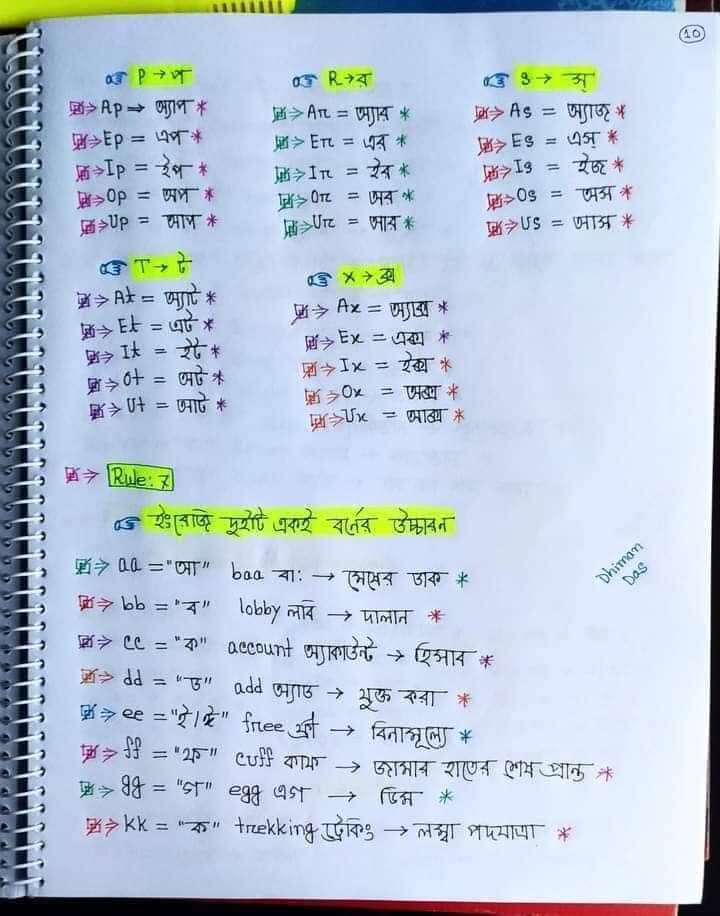 10
P → প
Ap ⇒ অ্যাপ *
Ep = এপ *
Ip = ইপ *
Op = অপ *
Up = আপ *
R → র
Ar = অ্যার *
Er = এর *
Ir = ইর *
Or = অর *
Ur = আর *
S → স
As = অ্যাজ *
Es = এস *
Is = ইজ *
Os = অস *
Us = আস *
T → ট
At = অ্যাট *
Et = এট *
It = ইট *
Ot = অট *
Ut = আট *
X → ক্স
Ax = অ্যাক্স *
Ex = এক্স *
Ix = ইক্স *
Ox = অক্স *
Ux = আক্স *
Rule: 7
ইংরেজি দুইটি একই বর্নের উচ্চারন
Dhiman
Das
aa = "আ" baa বা: → মেষের ডাক *
bb = "ব" lobby লবি → দালান *
cc = "ক" account অ্যাকাউন্ট → হিসাব *
dd = "ড" add অ্যাড → যুক্ত করা *
ee = "ই/ঈ" free ফ্রী → বিনামূল্যে *
ff = "ফ" cuff কাফ → জামার হাতের শেষ প্রান্ত *
gg = "গ" egg এগ → ডিম *
kk = "ক" trekking ট্রেকিং → লম্বা পদযাত্রা *